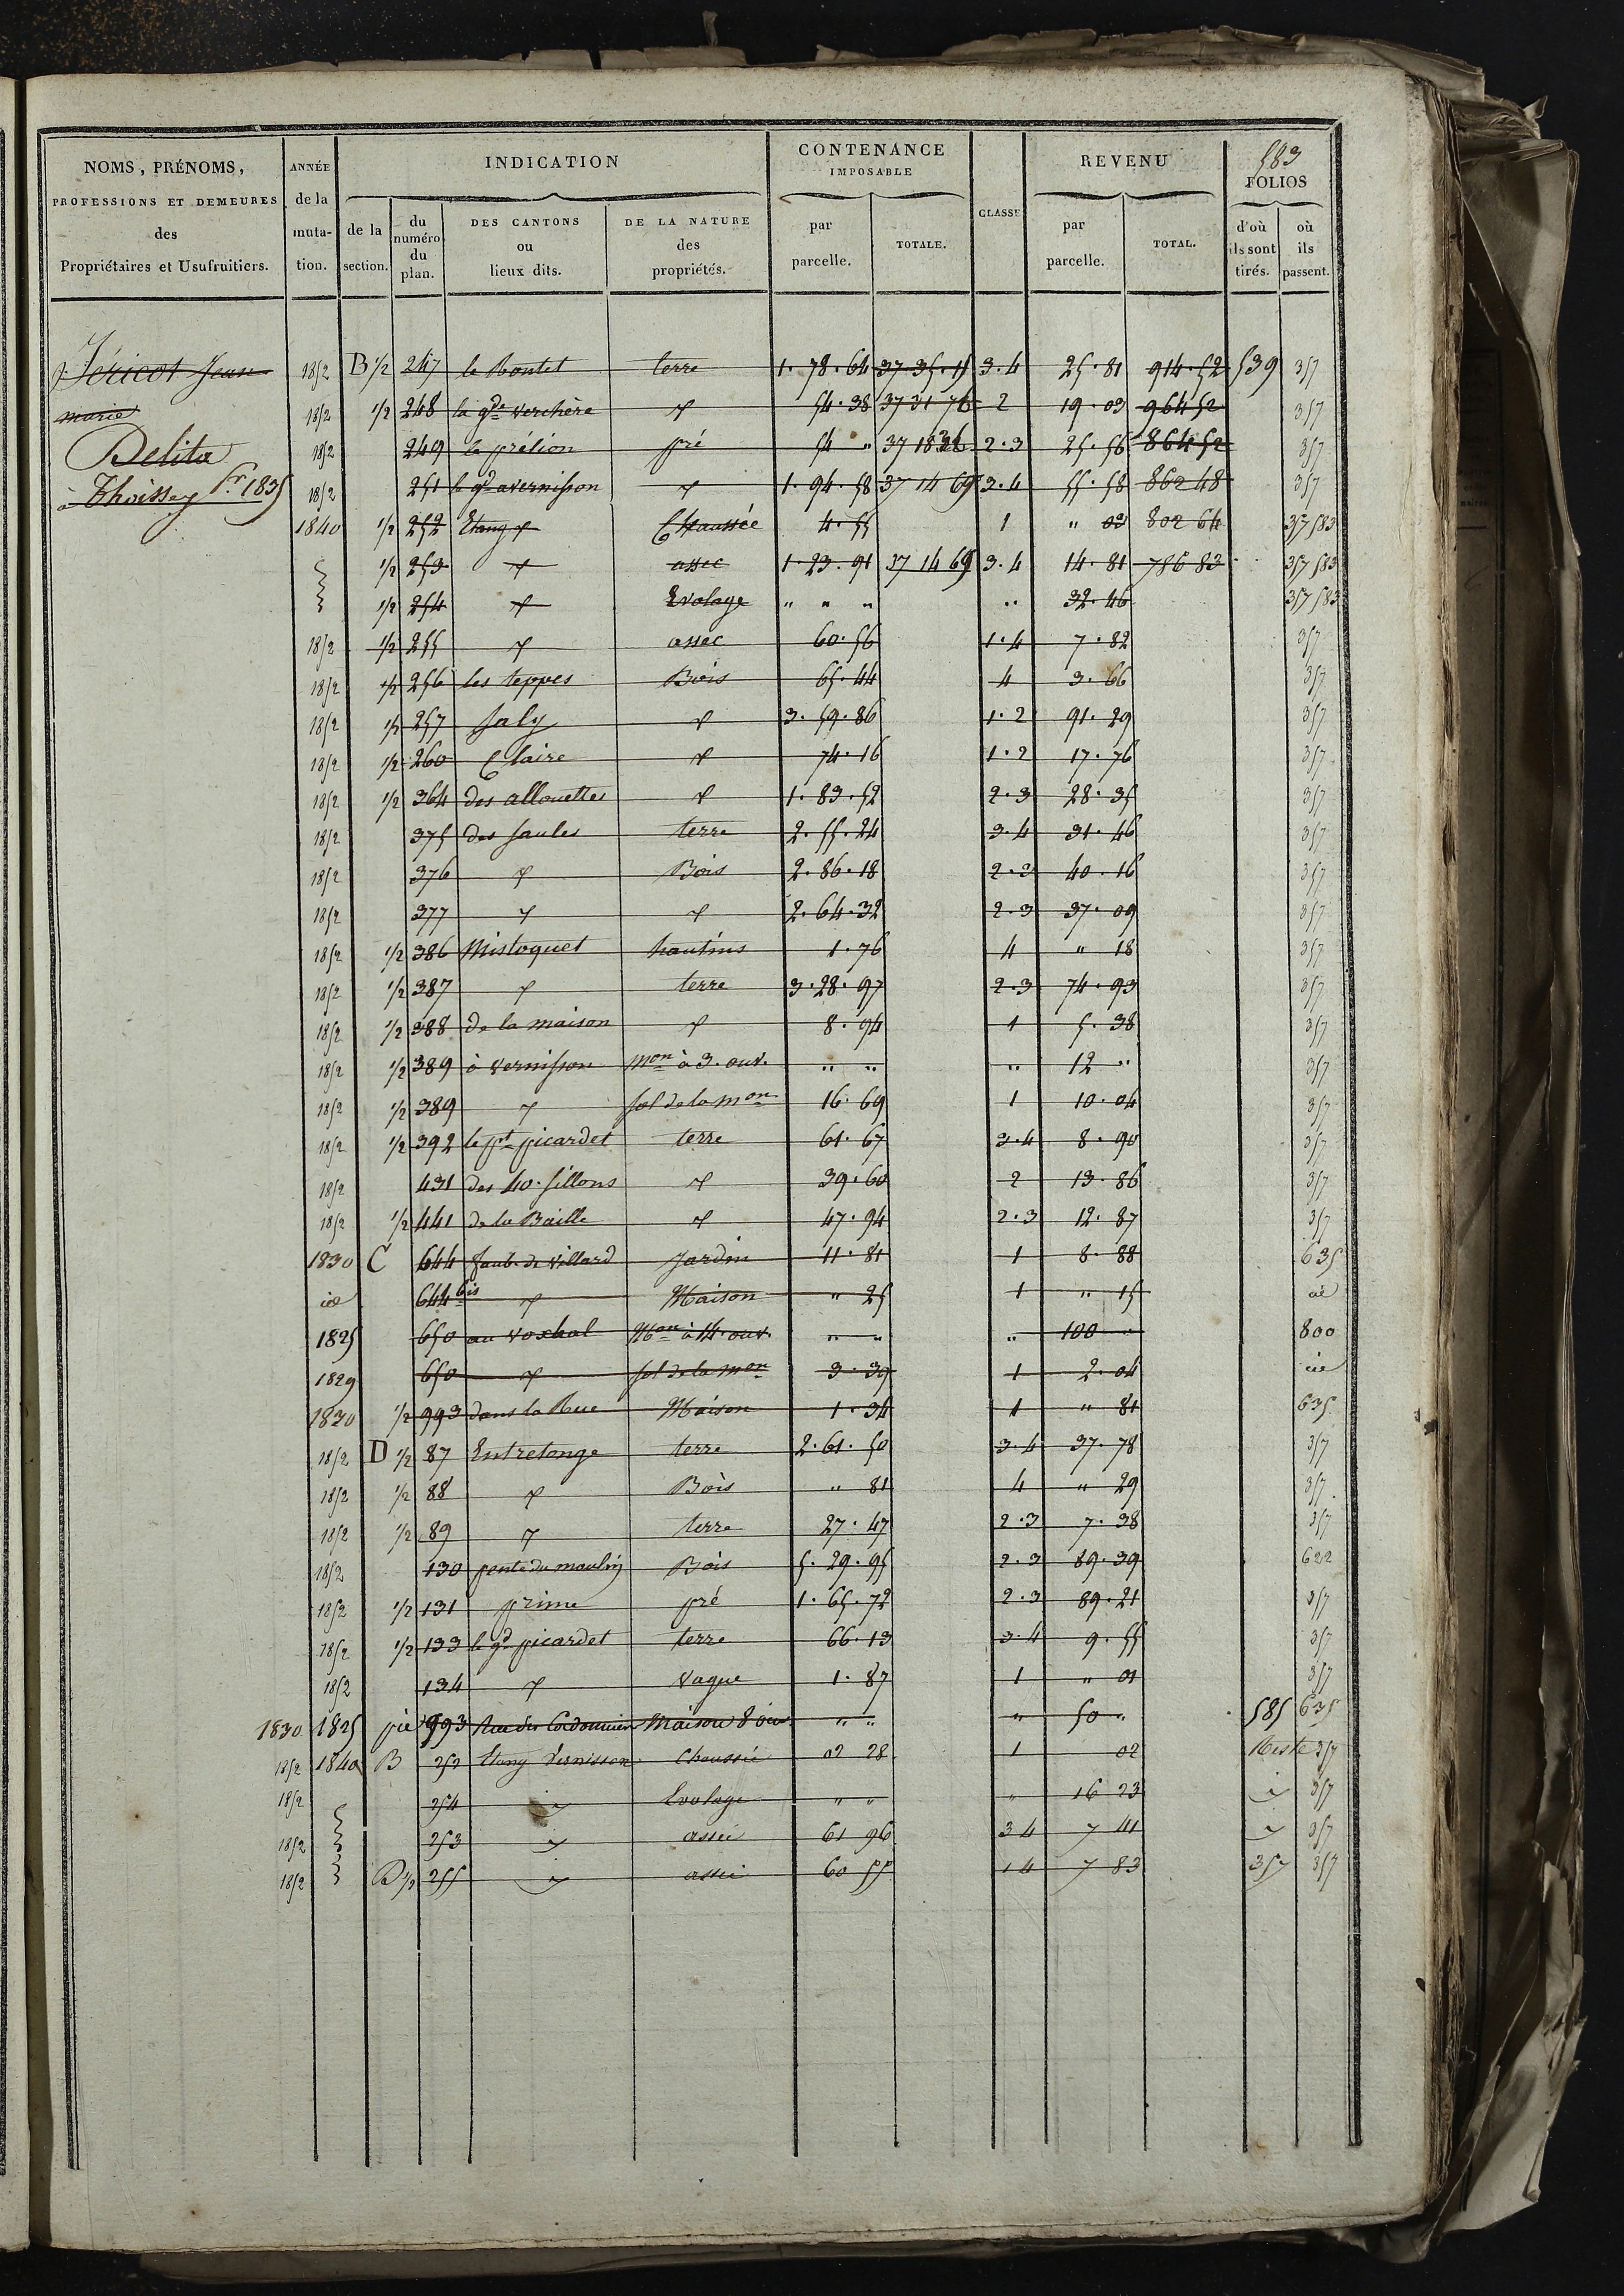 583
NOMS, PRÉNOMS, PROFESSIONS ET DEMEURES des Propriétaires et Usufruitiers.
ANNÉE de la muta-tion.
INDICATION
de la section.
du numéro du plan.
DES CANTONS ou lieux dits.
DE LA NATURE des propriétés.
CONTENANCE IMPOSABLE
par parcelle.
TOTALE.
CLASSE
REVENU
par parcelle.
TOTAL.
FOLIOS
d'où ils sont tirés.
où ils passent.
Jéricot Jean
marie
Delita
à Thoissey 1835
1852 B 1/2 247 le Montet terre 1.78.64 37 35.15 3.4 25.81 914.52 539 357
1852 1/2 248 la gde verchère d 54.38 37 31 76 2 19.03 964 52 357
1852 249 le prélion pré 54 " 37 18 32 2.3 25.56 864 52 357
1852 251 le gd avernisson d 1.94.58 37 14 69 3.4 55.58 862 48 357
1840 1/2 252 Etang d Chaussée 4.55 1 " 03 802 64 357 583
1/2 253 d assec 1.23.91 37 14 69 3.4 14.81 786 83 357 583
1/2 254 d Evolage " " " " 32.46 357 583
1852 1/2 255 d assec 60.56 1.4 7.82 357
1852 1/2 256 les teppes Bois 65.44 4 3.66 357
1852 1/2 257 Saly d 3.59.86 1.2 91.29 357
1852 1/2 260 Claire d 74.16 1.2 17.76 357
1852 1/2 364 des allouettes d 1.83.52 2.3 28.35 357
1852 375 des saules terre 2.55.24 3.4 31.46 357
1852 376 d Bois 2.86.18 2.3 40.16 357
1852 377 d d 2.64.32 2.3 37.09 357
1852 1/2 386 Mistoquet hautins 1.76 4 " 18 357
1852 1/2 387 d terre 3.28.97 2.3 74.93 357
1852 1/2 388 de la maison d 8.94 1 5.38 357
1852 1/2 389 à vernisson mon à 3. ouv. " " " 12 " 357
1852 1/2 389 d sol de la mon 16.69 1 10.04 357
1852 1/2 392 le pt picardet terre 61.67 3.4 8.90 357
1852 431 des 40. sillons d 39.60 2 13.86 357
1852 1/2 441 de la Baille d 47.94 2.3 12.87 357
1830 C 644 faub. de villard Jardin 11.81 1 8.88 635
id 644 bis d Maison " 25 1 " 15 id
1825 650 au voxhal Mon à 14. ouv. " " " 100 " 800
1829 650 d sol de la mon 3.39 1 2.04 id
1830 1/2 993 dans la Rue Maison 1.34 1 " 81 635
1852 D 1/2 87 Entretonge terre 2.61.50 3.4 37.78 357
1852 1/2 88 d Bois " 81 4 " 29 357
1852 1/2 89 d terre 27.47 2.3 7.38 357
1852 130 pente du moulin Bois 5.29.95 2.3 89.39 622
1852 1/2 131 prime pré 1.65.72 2.3 89.21 357
1852 1/2 133 le gd picardet terre 66.13 3.4 9.55 357
1852 134 d vague 1.87 1 " 01 357
1830 1825 pie 993 Rue des Cordonniers Maison 8 ouv " " " 50 " 585 635
1852 1840 B 252 Etang Vernisson Chaussée 02 28 1 02 Reste 357
1852 254 d Evolage " " " 16 23 d 357
1852 253 d assec 61 96 3 4 7 41 d 357
1852 B 1/2 255 d assec 60 55 1 4 7 83 357 357